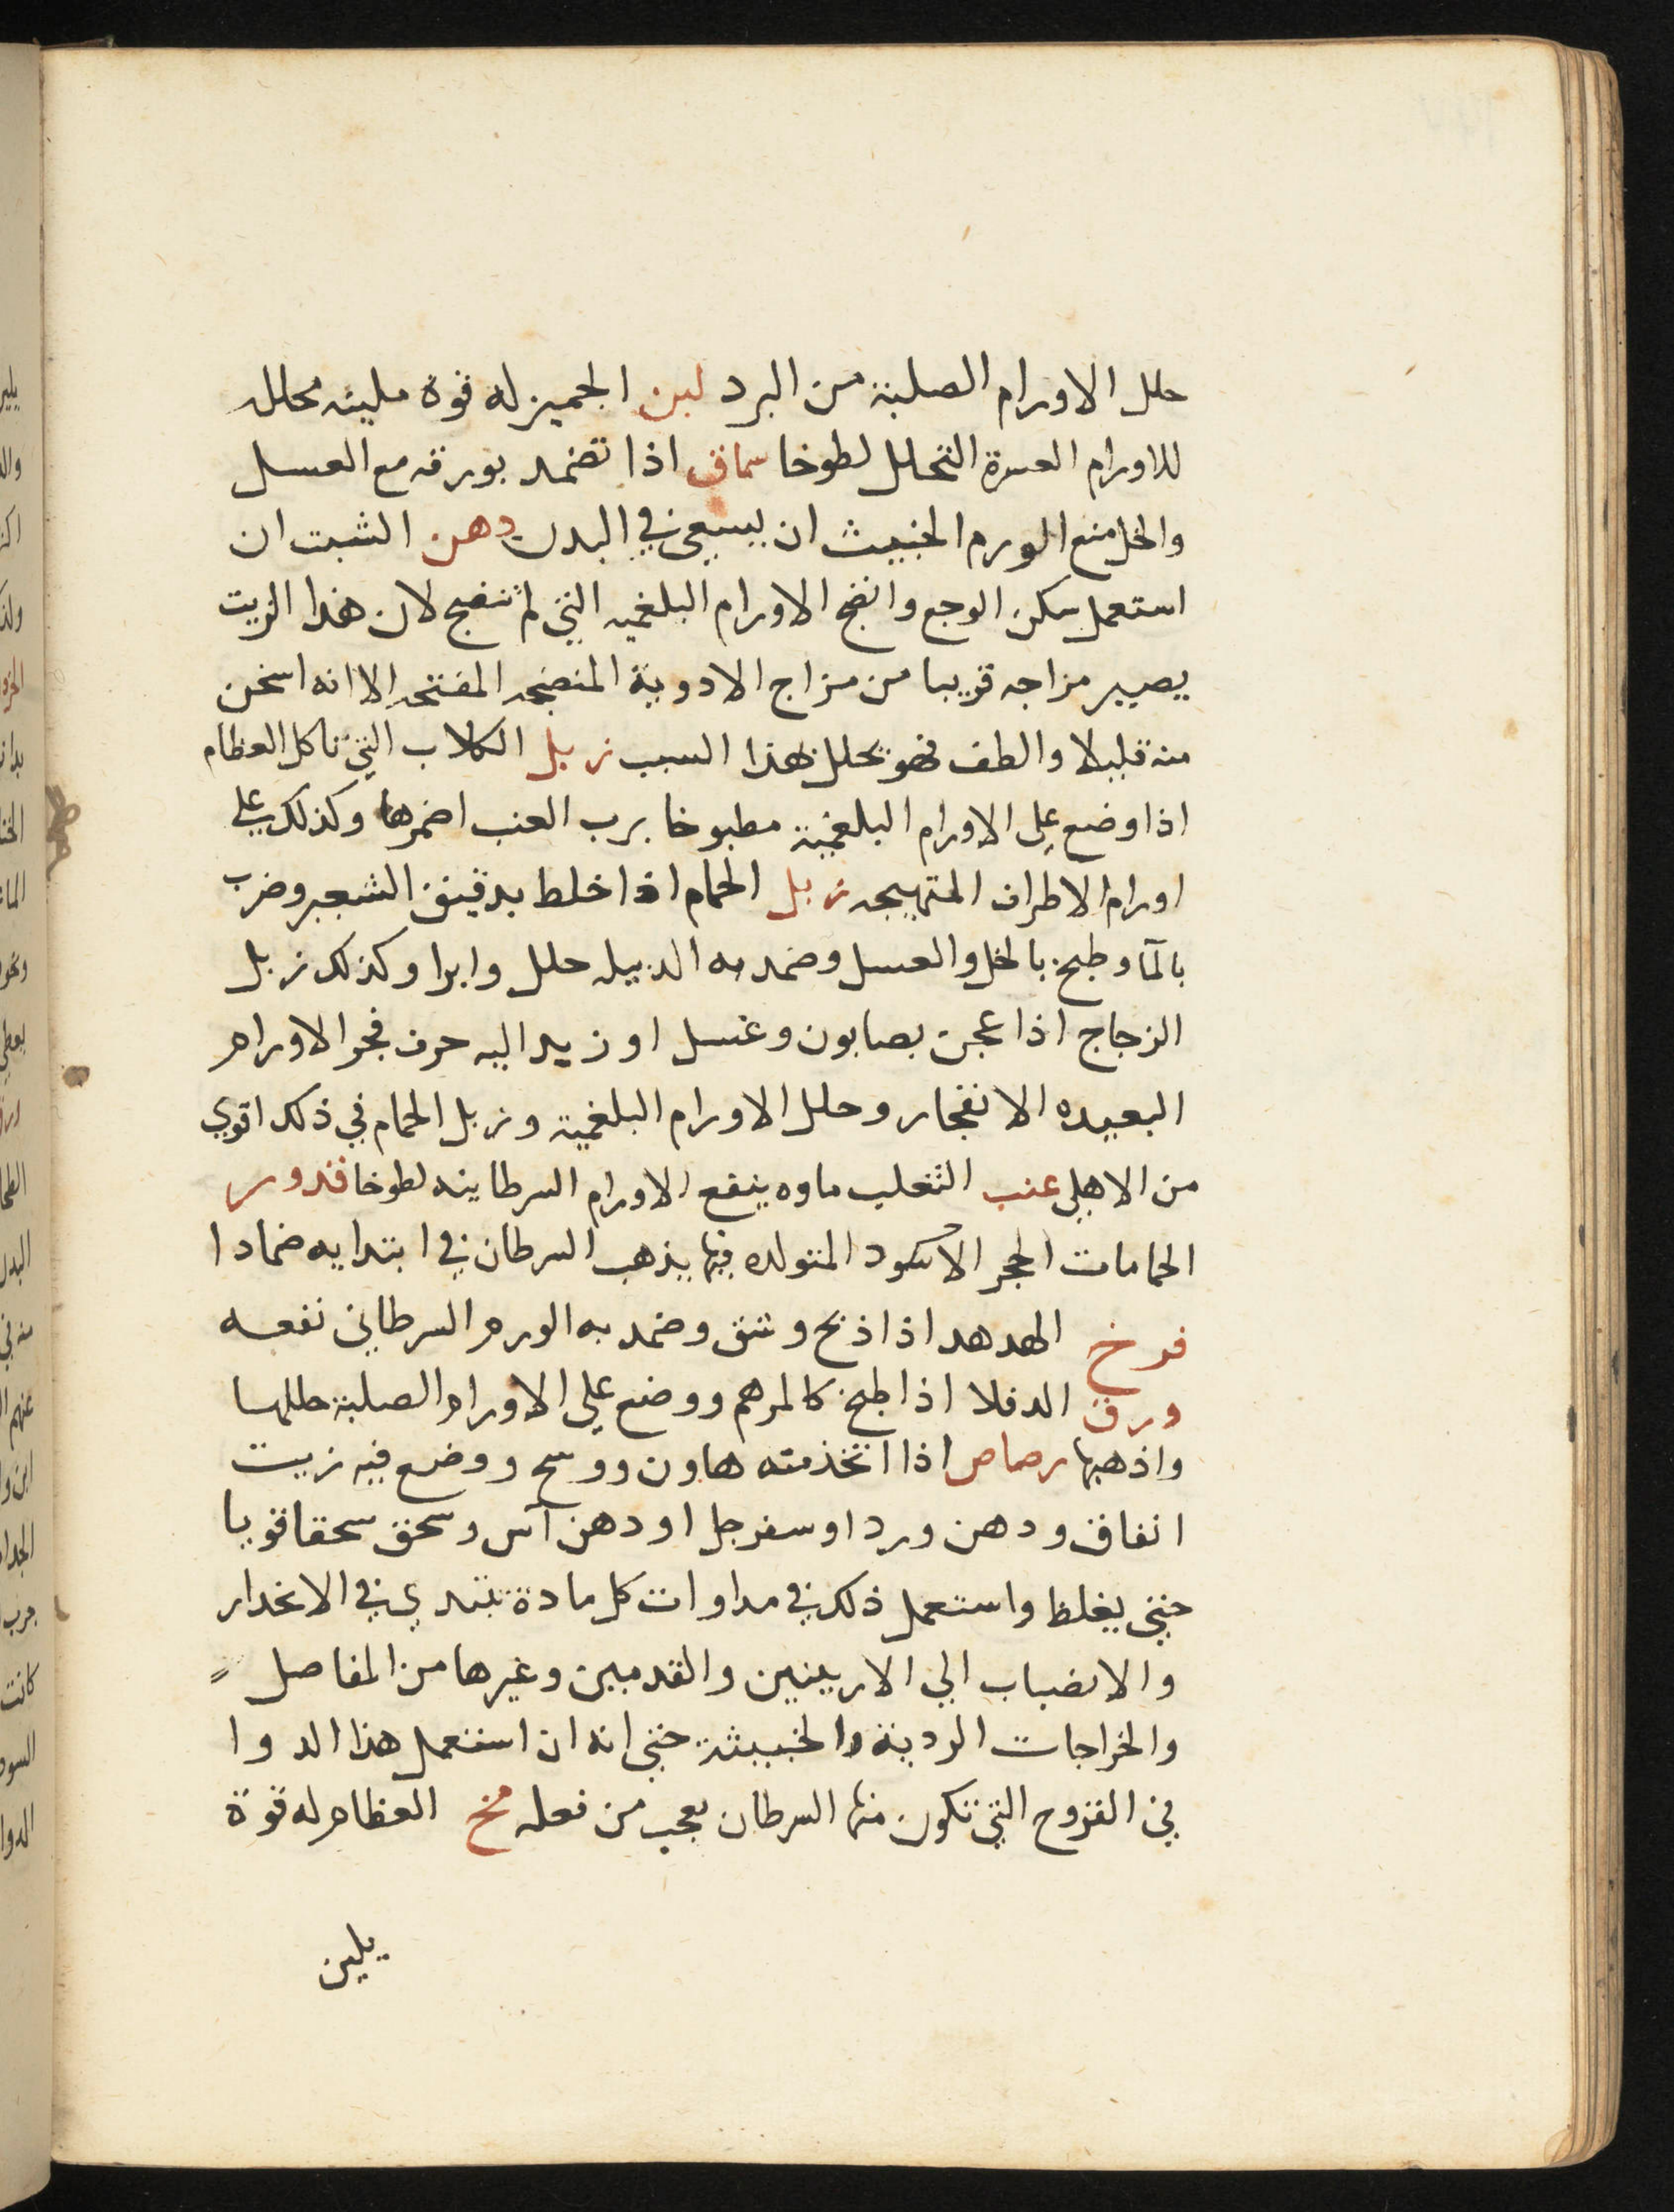 حلل الاورام الصلبة من البرد لبن الجميز له قوة ملينه محلله
للاورام العسرة التحلل لطوخا سماق اذا تضمد بورقه مع العسل
والخل منع الورم الخبيث ان يسعى في البدن دهن الشبت ان
استعمل سكن الوجع وانضج الاورام البلغميه التي لم تنضج لان هذا الزيت
يصير مزاجه قريبا من مزاج الادوية المنضجه المفتحه الا انه اسخن
منه قليلا والطف فهو يحلل لهذا السبب زبل الكلاب التي تاكل العظام
اذا وضع على الاورام البلغمية مطبوخا برب العنب اضمرها وكذلك على
اورام الاطراف المتهيجه زبل الحمام اذا خلط بدقيق الشعير وضرب
بالمآ وطبخ بالخل والعسل وضمد به الدبيله حلل وابرا وكذلك زبل
الزجاج اذا عجن بصابون وغسل او زيد اليه حرف فجر الاورام
البعيده الانفجار وحلل الاورام البلغمية وزبل الحمام في ذلك اقوي
من الاهلي عنب الثعلب ماوه ينفع الاورام السرطاينه لطوخا قدور
الحمامات الحجر الاسود المتولده فيها يذهب السرطان في ابتدايه ضمادا
فرخ الهدهد اذا ذبح وشق وضمد به الورم السرطاني نفعه
ورق الدفلا اذا طبخ كالمرهم ووضع علي الاورام الصلبة حللها
واذهبها رصاص اذا اتخذ منه هاون ووسح ووضع فيه زيت
انفاق ودهن ورد او سفرجل او دهن آس وسحق سحقا قويا
حتي يغلظ واستعمل ذلك في مداوات كل مادة تبتدي في الانحدار
والانصباب الي الاربيتين والقدمين وغيرها من المفاصل
والخراجات الردية والخبيثة حتي انه ان استعمل هذا الدوا
في القروح التي تتكون منها السرطان يعجب من فعله مخ العظام له قوة
يلين